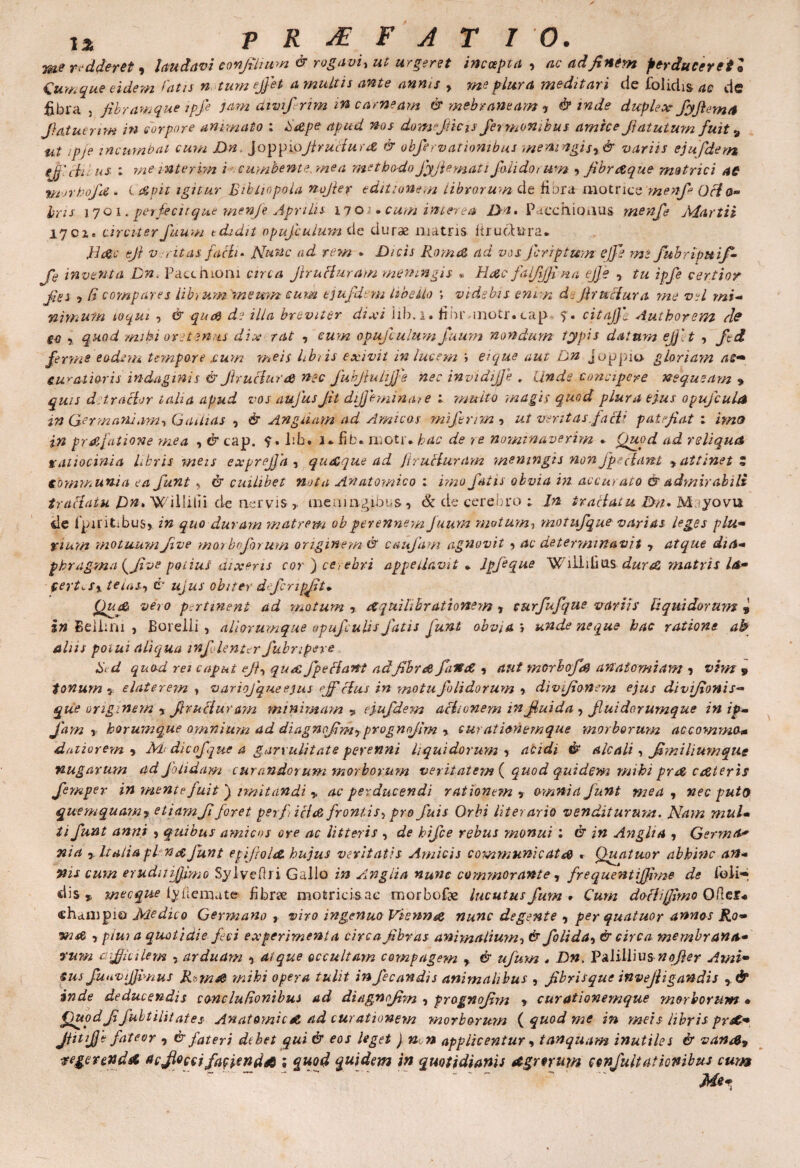 12 PRÆFATIO.
me redderet, laudavi consilium & rogavi, ut urgeret incœpta, ac ad finem perduceret:
Cumque eidem satis notum esset a multis ante annis, me plura meditari de solidis ac de
fibra, fibramque ipse jam diviserim in carneam & mebraneam, & inde duplex systema
statuerim in corpore animato: Sæpe apud nos domesticis sermonibus amice statutum fuit,
ut ipse incumbat cum Dn. Joppio structuræ & observationibus meningis, & variis ejusdem
effectibus: me interim incumbente mea methodo systemati solidorum, fibræque motrici ac
morbosæ. Cæpit igitur Bibliopola noster editionem librorum de fibra motrice mense Octo-
bris 1701. perfecitque mense Aprilis 1702. cum interea Dn. Pacchionus mense Martii
1702. circiter suum edidit opusculum de duræ matris structura.
Hæc est veritas facti. Nunc ad rem. Dicis Romæ ad vos scriptum esse me subripuis-
se inventa Dn. Pacchioni circa structuram meningis. Hæc falsissima esse, tu ipse certior
fies, si compares librum meum cum ejusdem libello; videbis enim de structura me vel mi-
nimum loqui, & quæ de illa breviter dixi lib.1. fibr.motr.cap. 5. citasse Authorem de
eo, quod mihi oretenus dixerat, cum opusculum suum nondum typis datum esset, sed
ferme eodem tempore cum meis libris exivit in lucem; eique aut Dn Joppio gloriam ac-
curatioris indaginis & structuræ nec substulisse nec invidisse. Unde concipere nequeam,
quis detractor talia apud vos ausus sit disseminare: multo magis quod plura ejus opuscula
in Germaniam, Gallias, & Angliam ad Amicos miserim, ut veritas facti patefiat: imo
in præfatione mea, & cap. 5. lib. 1. fib. motr. hac de re nominaverim. Quod ad reliqua
ratiocinia libris meis expressa, quæque ad structuram meningis non spectant, attinet:
communia ea sunt, & cuilibet nota Anatomico: imo satis obvia in accurato & admirabili
tractatu Dn. Willisii de nervis, meningibus, & de cerebro: In tractatu Dn. Mayovii
de spiritibus, in quo duram matrem ob perennem suum motum, motusque varias leges plu-
rium motuum sive morbosorum originem & causam agnovit, ac determinavit, atque dia-
phragma (sive potius dixeris cor) cerebri appellavit. Ipseque Willisius duræ matris la-
certos, telas, & ujus obiter descripsit.
Quæ vero pertinent ad motum, æquilibrationem, cursusque variis liquidorum,
in Bellini, Borelli, aliorumque opusculis satis sunt obvia; unde neque hac ratione ab
aliis potui aliqua insolenter subripere.
Sed quod rei caput est, quæ spectant ad fibræ sanæ, aut morbosæ anatomiam, vim,
tonum, elaterem, variosque ejus effectus in motu solidorum, divisionem ejus divisionis-
que originem, structuram minimam, ejusdem actionem in fluida, fluidorumque in ip-
sam, horumque omnium ad diagnosim, prognosim, curationemque morborum accommo-
datiorem, Medicosque a garrulitate perenni liquidorum, acidi & alcali, similiumque
nugarum ad solidam curandorum morborum veritatem (quod quidem mihi præ cæteris
semper in mente fuit) imitandi, ac perducendi rationem, omnia sunt mea, nec puto
quemquam, etiamsi foret perfrictæ frontis, pro suis Orbi literario venditurum. Nam mul-
ti sunt anni, quibus amicos ore ac litteris, de hisce rebus monui: & in Anglia, Germa-
nia, Italia plenæ sunt epistolæ hujus veritatis Amicis communicatæ. Quatuor abhinc an-
nis cum eruditissimo Sylvestri Gallo in Anglia nunc commorante, frequentissime de soli-
dis, mecque systemate fibræ motricis ac morbosæ lucutus sum. Cum doctissimo Oster-
champio Medico Germano, viro ingenuo Viennæ nunc degente, per quatuor annos Ro-
mæ, plura quotidie feci experimenta circa fibras animalium, & solida, & circa membrana-
rum difficilem, arduam, atque occultam compagem, & usum. Dn. Palillius noster Ami-
cus suavissimus Romæ mihi opera tulit in secandis animalibus, fibrisque investigandis, &
inde deducendis conclusionibus ad diagnosim, prognosim, curationemque morborum.
Quod si subtilitates Anatomicæ ad curationem morborum (quod me in meis libris præ-
stitisse fateor, & fateri debet qui & eos leget) non applicentur, tanquam inutiles & vanæ,
regerendæ ac flocci faciendæ: quod quidem in quotidianis ægrorum consultationibus cum
Me-